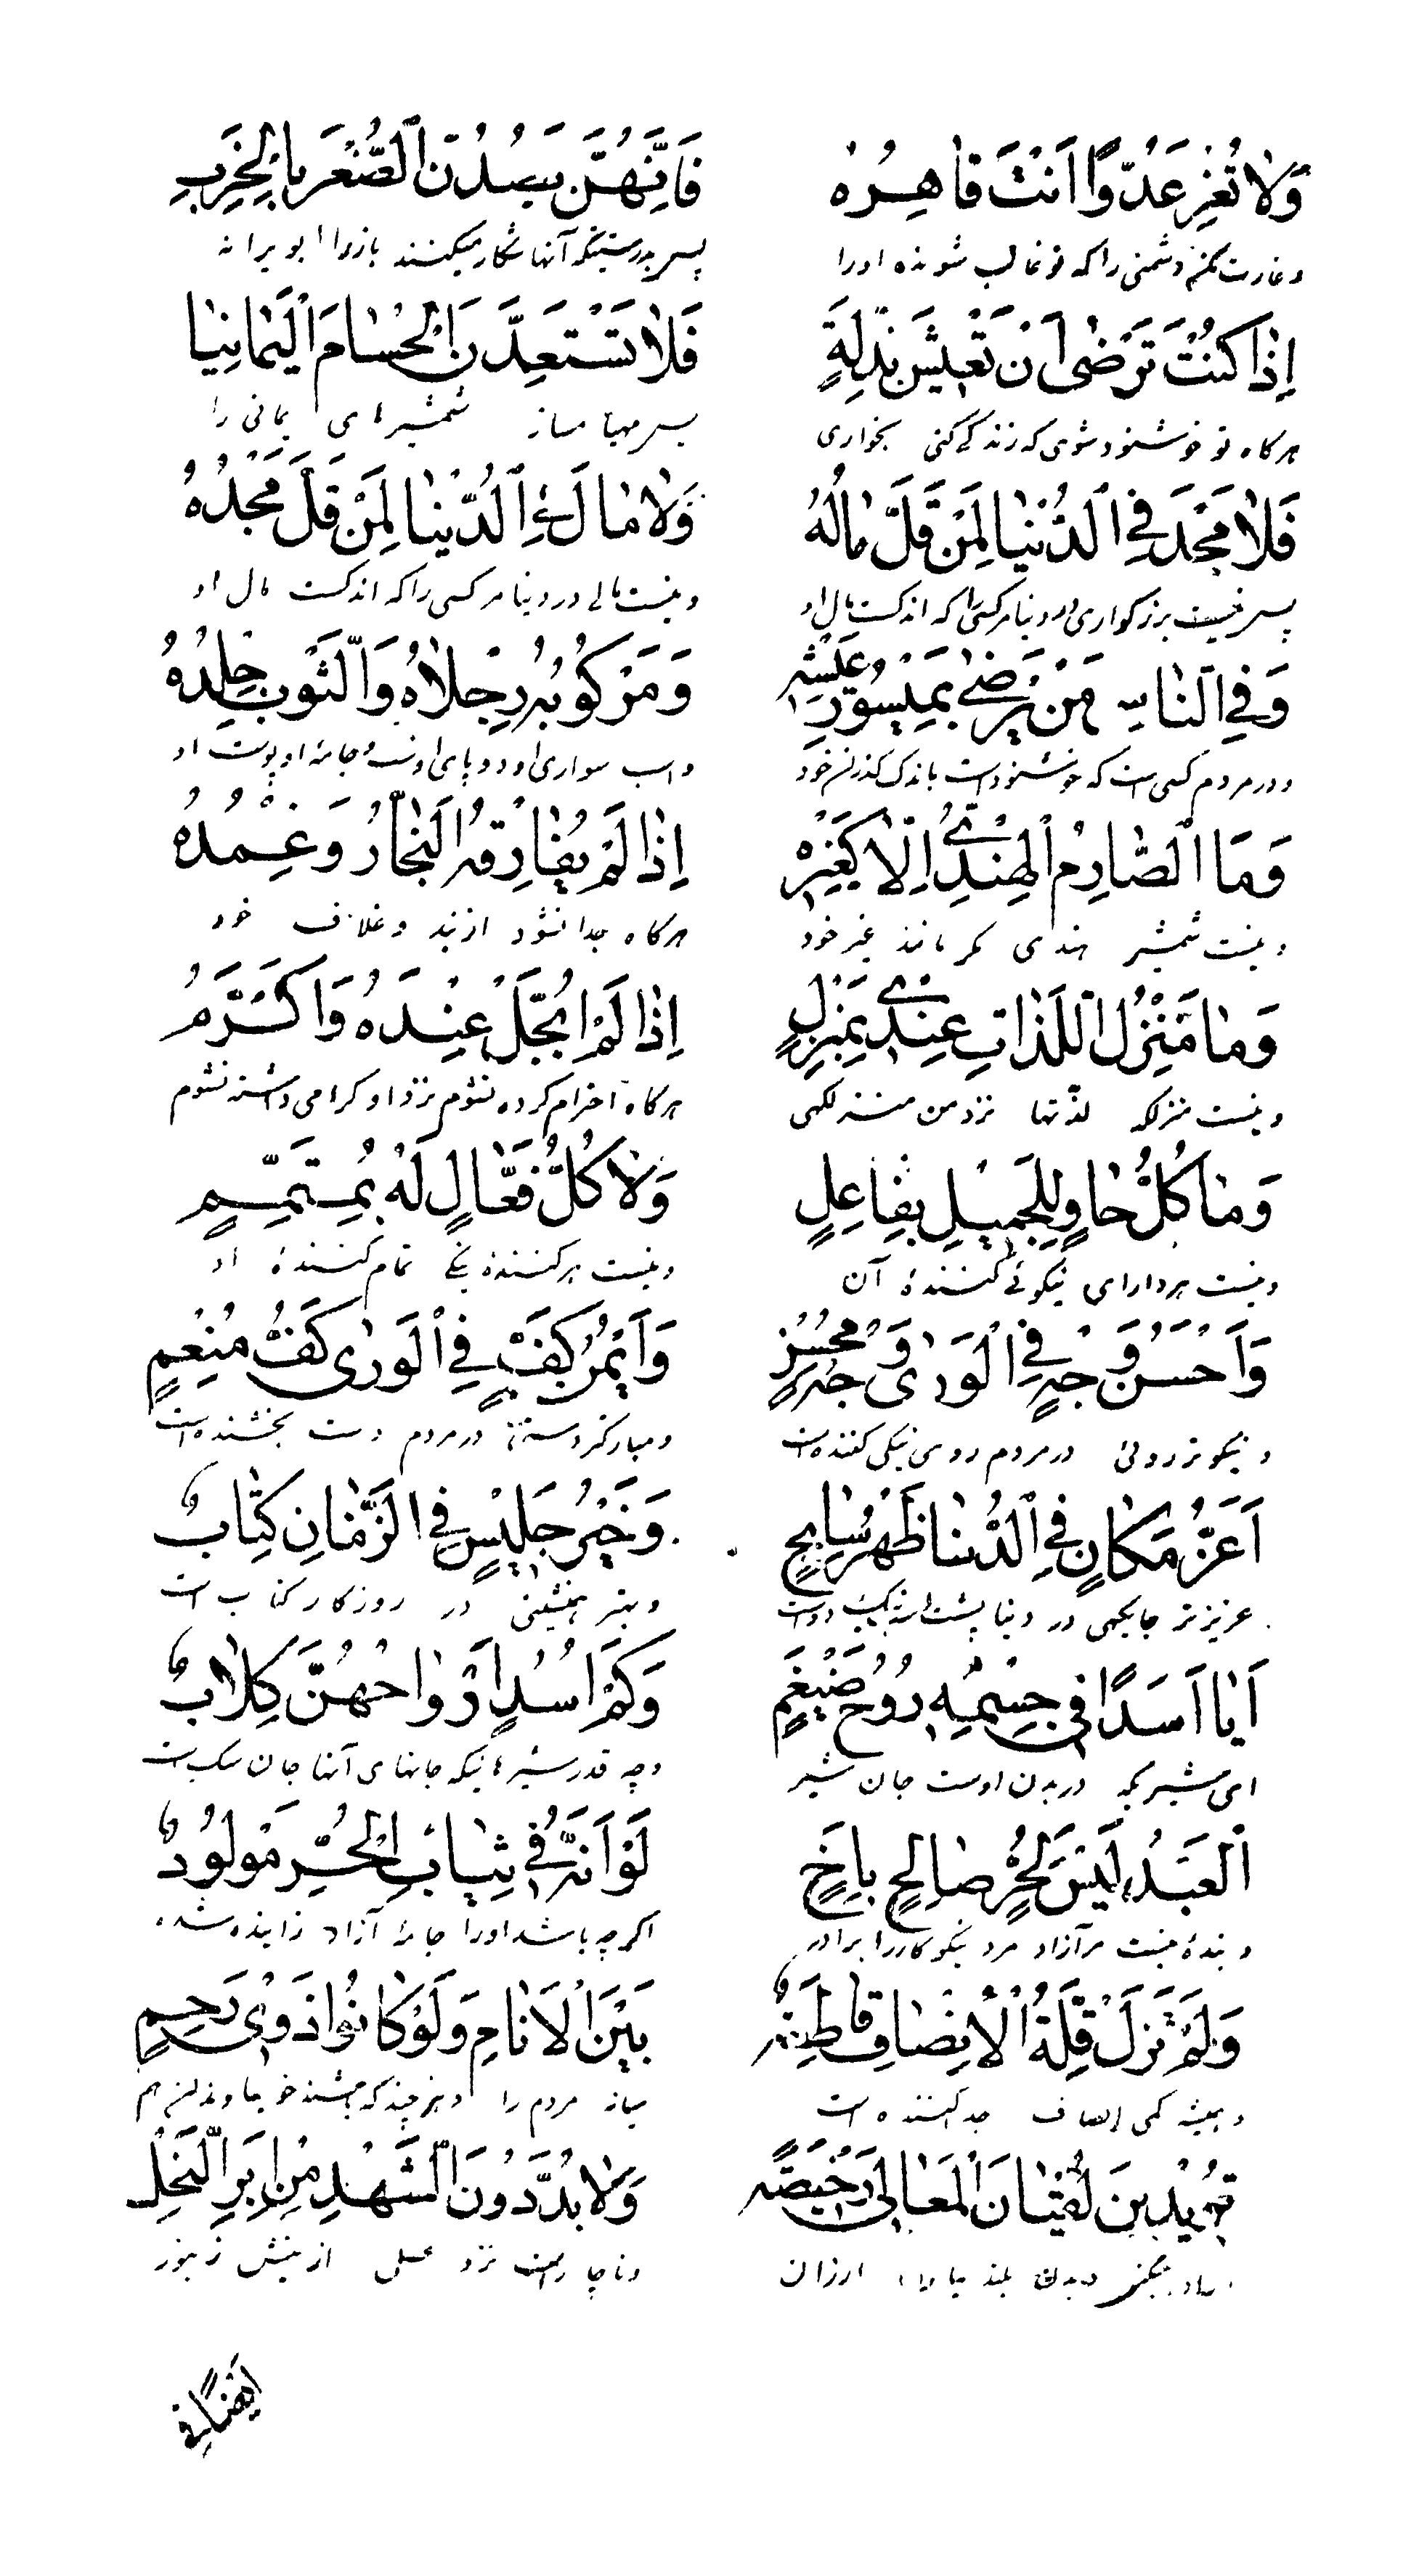 وَلاٰ تُعِزِ عَدُوًّا اَنْتَ قٰاهِرُهُ فَاِنَّهُنَّ يَصِدْنَ الصَّقْرَ بِالْخَرَبِ
و غارت مکن دشمنی را که تو غالب شونده او را پس بدرستیکه آنها شکار میکنند باز را ابوبرانه
اِذٰا كُنْتَ تَرْضٰى اَنْ تَعْيشَ بِذِلَّةٍ فَلاٰ تَسْتَعِدَّنَ الْحُسٰامَ الْيَمٰانِيٰا
هرگاه تو خوشنود شوی که زندگی کنی بخواری پس مهیا مساز شمشیرهای یمانی را
فَلاٰ مَجْدَ فِي الدُّنْيٰا لِمَنْ قَلَّ مٰالُهُ وَلاٰ مٰالَ فِي الدُّنْيٰا لِمَنْ قَلَّ مَجْدُهُ
پس نیست بزرگواری در دنیا مر کسی را که اندکست مال او و نیست مالی در دنیا مر کسی را که اندکست مال او
وَفِي النّٰاسِ مَنْ يَرْضٰى بِمَيْسُورِ عَيْشِهِ وَمَرْكُوبُهُ رِجْلاٰهُ وَالثَّوْبُ جِلْدُهُ
و در مردم کسی است که خوشنود است باندک گذران خود و اسب سواری او دو پای اوست و جامهٔ او پوست او
وَمَا الصّٰارِمُ الْهِنْدِيُّ اِلاّٰ كَغَيْرِهِ اِذٰا لَمْ يُفٰارِقْهُ النِّجٰادُ وَغِمْدُهُ
و نیست شمشیر هندی مگر مانند غیر خود هرگاه جدا نشود از بند و غلاف خود
وَمٰا مَنْزِلُ اللَّذّٰاتِ عِنْدِي بِمَنْزِلٍ اِذٰا لَمْ اُبَجَّلْ عِنْدَهُ وَاُكَرَّمُ
و نیست منزلگه لذّتها نزد من منزلگهی هرگاه احترام کرده نشوم نزد او و گرامی داشته نشوم
وَمٰا كُلُّ حٰاوٍ لِلْجَمِيلِ بِفٰاعِلٍ وَلاٰ كُلُّ فَعّٰالٍ لَهُ بِمُتَمِّمٍ
و نیست هر دارای نیکوئی کنندهٔ آن و نیست هر کنندهٔ نیکی تمام کنندهٔ او
وَاَحْسَنُ وَجْهٍ فِي الْوَرٰى وَجْهُ مُحْسِنٍ وَاَيْمَنُ كَفٍّ فِي الْوَرٰى كَفُّ مُنْعِمٍ
و نیکوتر روئی در مردم روی نیکی کننده است و مبارکتر دستی در مردم دست بخشنده است
اَعَزُّ مَكٰانٍ فِي الدُّنٰا ظَهْرُ سٰابِحٍ وَخَيْرُ جَلِيسٍ فِي الزَّمٰانِ كِتٰابُ
عزیزتر جایگهی در دنیا پشت اسب تک رو است و بهتر همنشینی در روزگار کتاب است
اَيٰا اَسَدًا فِي جِسْمِهِ رُوحُ ضَيْغَمٍ وَكَمْ اُسُدٍ اَرْوٰاحُهُنَّ كِلاٰبُ
ای شیریکه در بدن اوست جان شیر و چه قدر شیرهائیکه جانهای آنها جان سگ است
الْعَبْدُ لَيْسَ لِحُرٍّ صٰالِحٍ بِاَخٍ لَوْ اَنَّهُ فِي ثِيٰابِ الْحُرِّ مَوْلُودُ
و بندهٔ نیست مر آزاد مرد نیکوکار را برادر اگر چه باشد او را جامهٔ آزاد زائیده شده
وَلَمْ تَزَلْ قِلَّةُ الْاِنْصٰافِ قٰاطِعَةً بَيْنَ الْاَنٰامِ وَلَوْ كٰانُوا ذَوِي رَحِمٍ
و همیشه کمی انصاف جدا کننده است میان مردم را و هر چند که باشند خویشاوندان هم
تُرِيدِينَ لُقْيٰانَ الْمَعٰالِي رَخِيصَةً وَلاٰ بُدَّ دُونَ الشَّهْدِ مِنْ اِبَرِ النَّحْلِ
دیدن بلند ارزان و ناچار است نزد عسل از نیش زنبور
ايضاً له